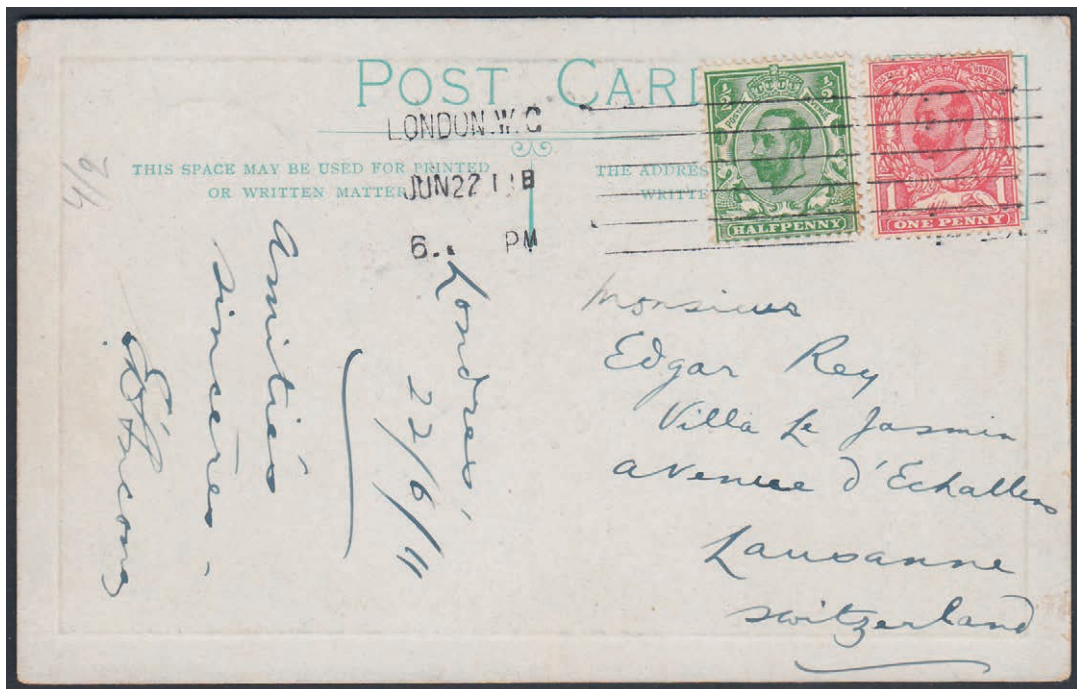 POST CARD
LONDON.W.C
JUN 22 11 B
6.. PM
THIS SPACE MAY BE USED FOR PRINTED
OR WRITTEN MATTER
THE ADDRES
WRITTE
½ ½
POSTAGE
HALFPENNY
POSTAGE REVENUE
1 1
ONE PENNY
4/2
Londres
22/6/11
Amitiés
sincères.
Monsieur
Edgar Rey
Villa Le Jasmin
avenue d'Echallens
Lausanne
Switzerland